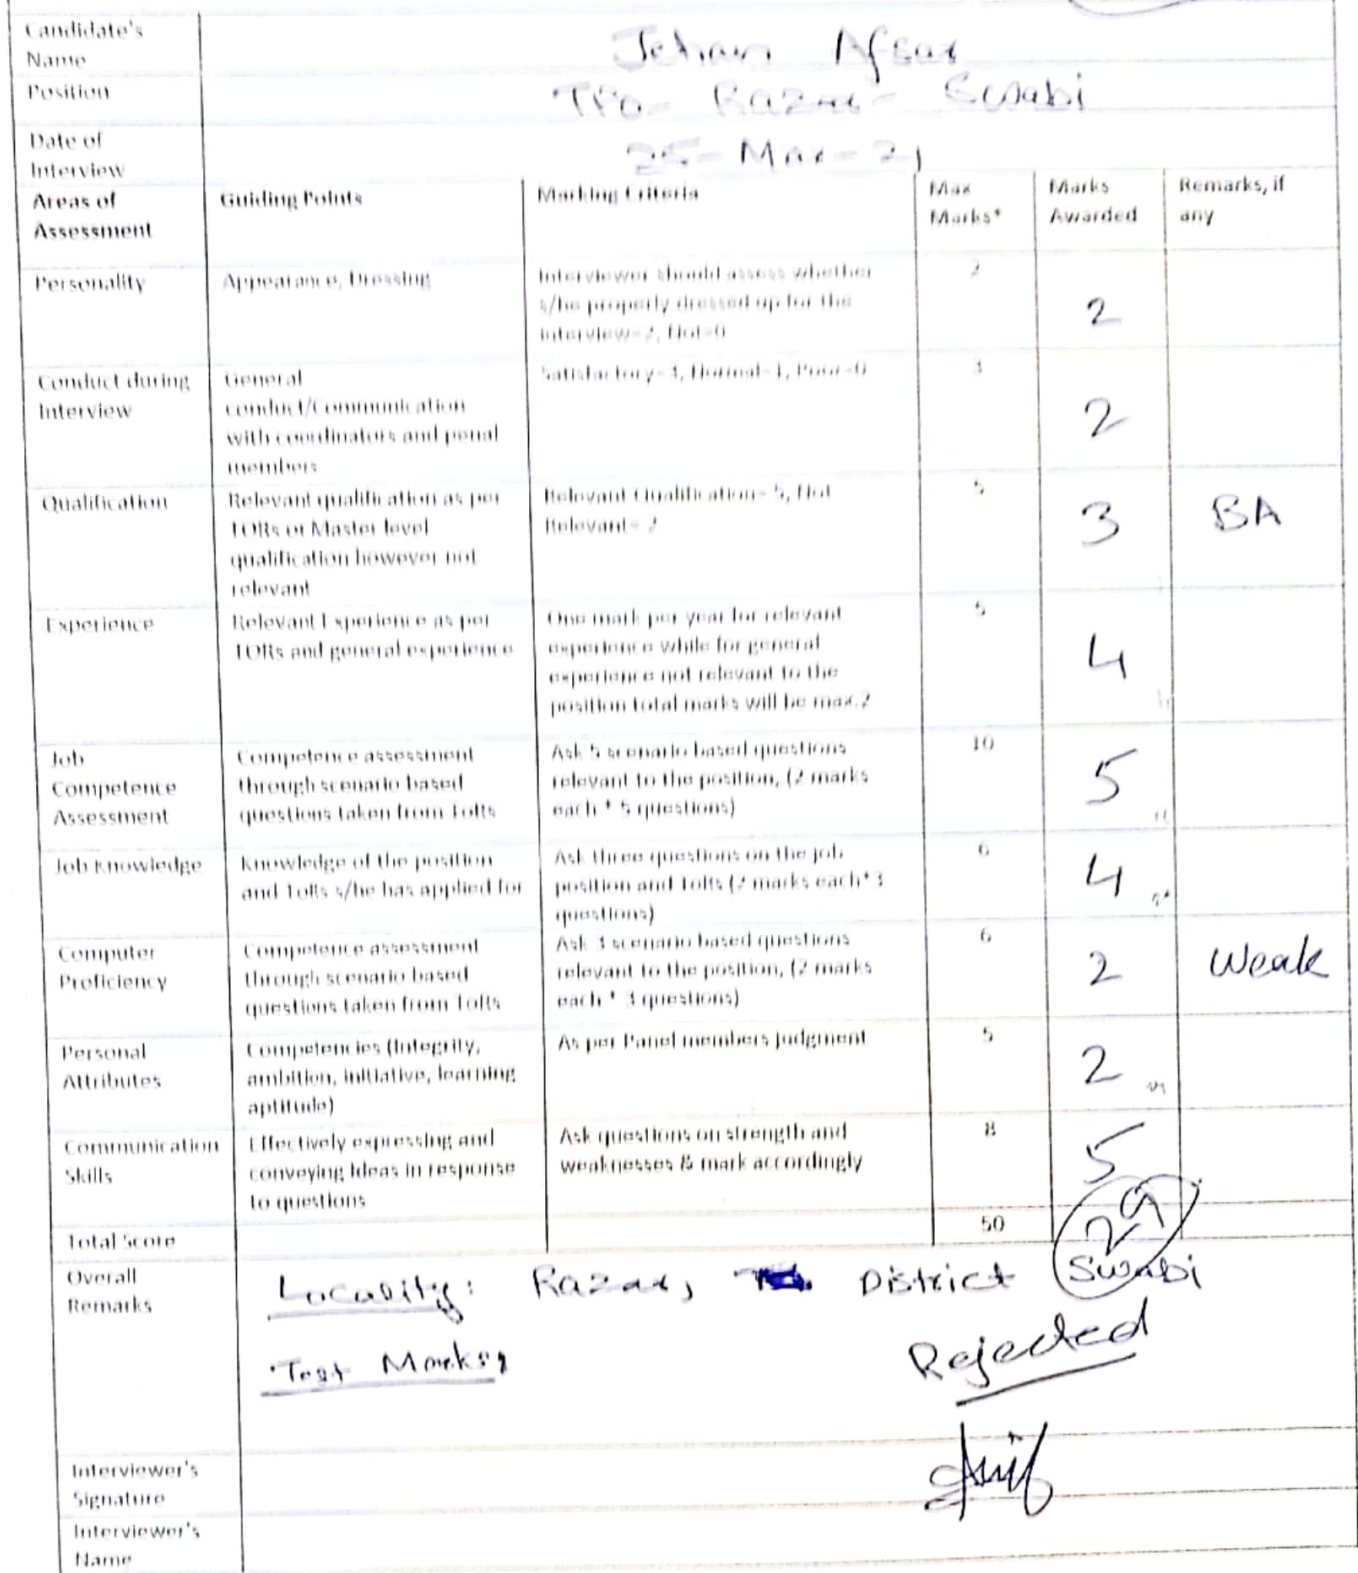 Candidate's
Name
Jehan Afsar
Position
TPO- Razar- Swabi
Date of
Interview
25-Mar-21
Areas of
Assessment
Guiding Points
Marking Criteria
Max
Marks*
Marks
Awarded
Remarks, if
any
Personality
Appearance, Dressing
Interviewer should assess whether
s/he properly dressed up for the
interview=2, Not=0
2
2
Conduct during
Interview
General
conduct/Communication
with coordinators and penal
members
Satisfactory=3, Normal=1, Poor=0
3
2
Qualification
Relevant qualification as per
TORs or Master level
qualification however not
relevant
Relevant Qualification= 5, Not
Relevant= 2
5
3
BA
Experience
Relevant Experience as per
TORs and general experience
One mark per year for relevant
experience while for general
experience not relevant to the
position total marks will be max.2
5
4
Job
Competence
Assessment
Competence assessment
through scenario based
questions taken from ToRs
Ask 5 scenario based questions
relevant to the position, (2 marks
each * 5 questions)
10
5
Job Knowledge
Knowledge of the position
and ToRs s/he has applied for
Ask three questions on the job
position and ToRs (2 marks each*3
questions)
6
4
Computer
Proficiency
Competence assessment
through scenario based
questions taken from ToRs
Ask 3 scenario based questions
relevant to the position, (2 marks
each * 3 questions)
6
2
Weak
Personal
Attributes
Competencies (Integrity,
ambition, initiative, learning
aptitude)
As per Panel members judgment
5
2
Communication
Skills
Effectively expressing and
conveying Ideas in response
to questions
Ask questions on strength and
weaknesses & mark accordingly
8
5
Total Score
50
29
Overall
Remarks
Locality: Razar, District Swabi
Test Marks:
Rejected
Interviewer's
Signature
Interviewer's
Name